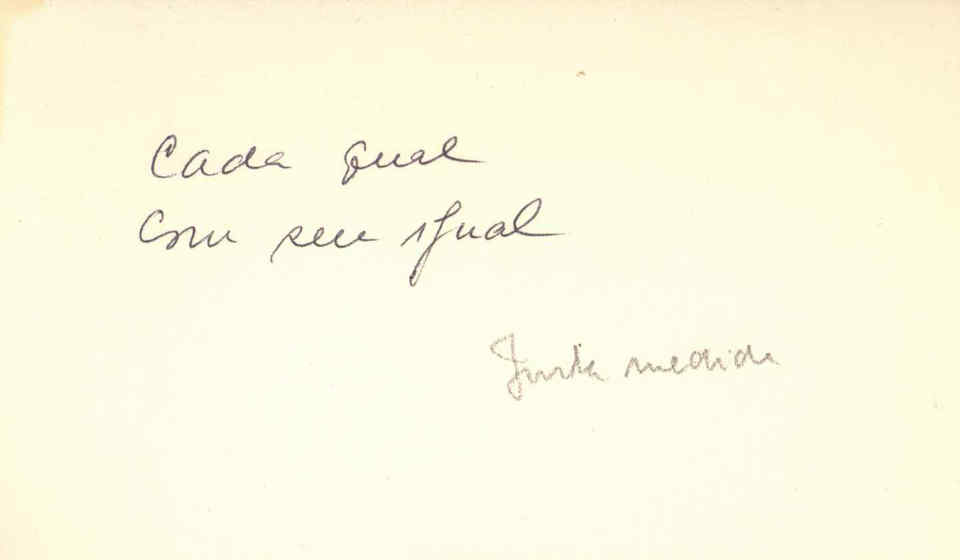 Cada qual
Com seu igual
Justa medida